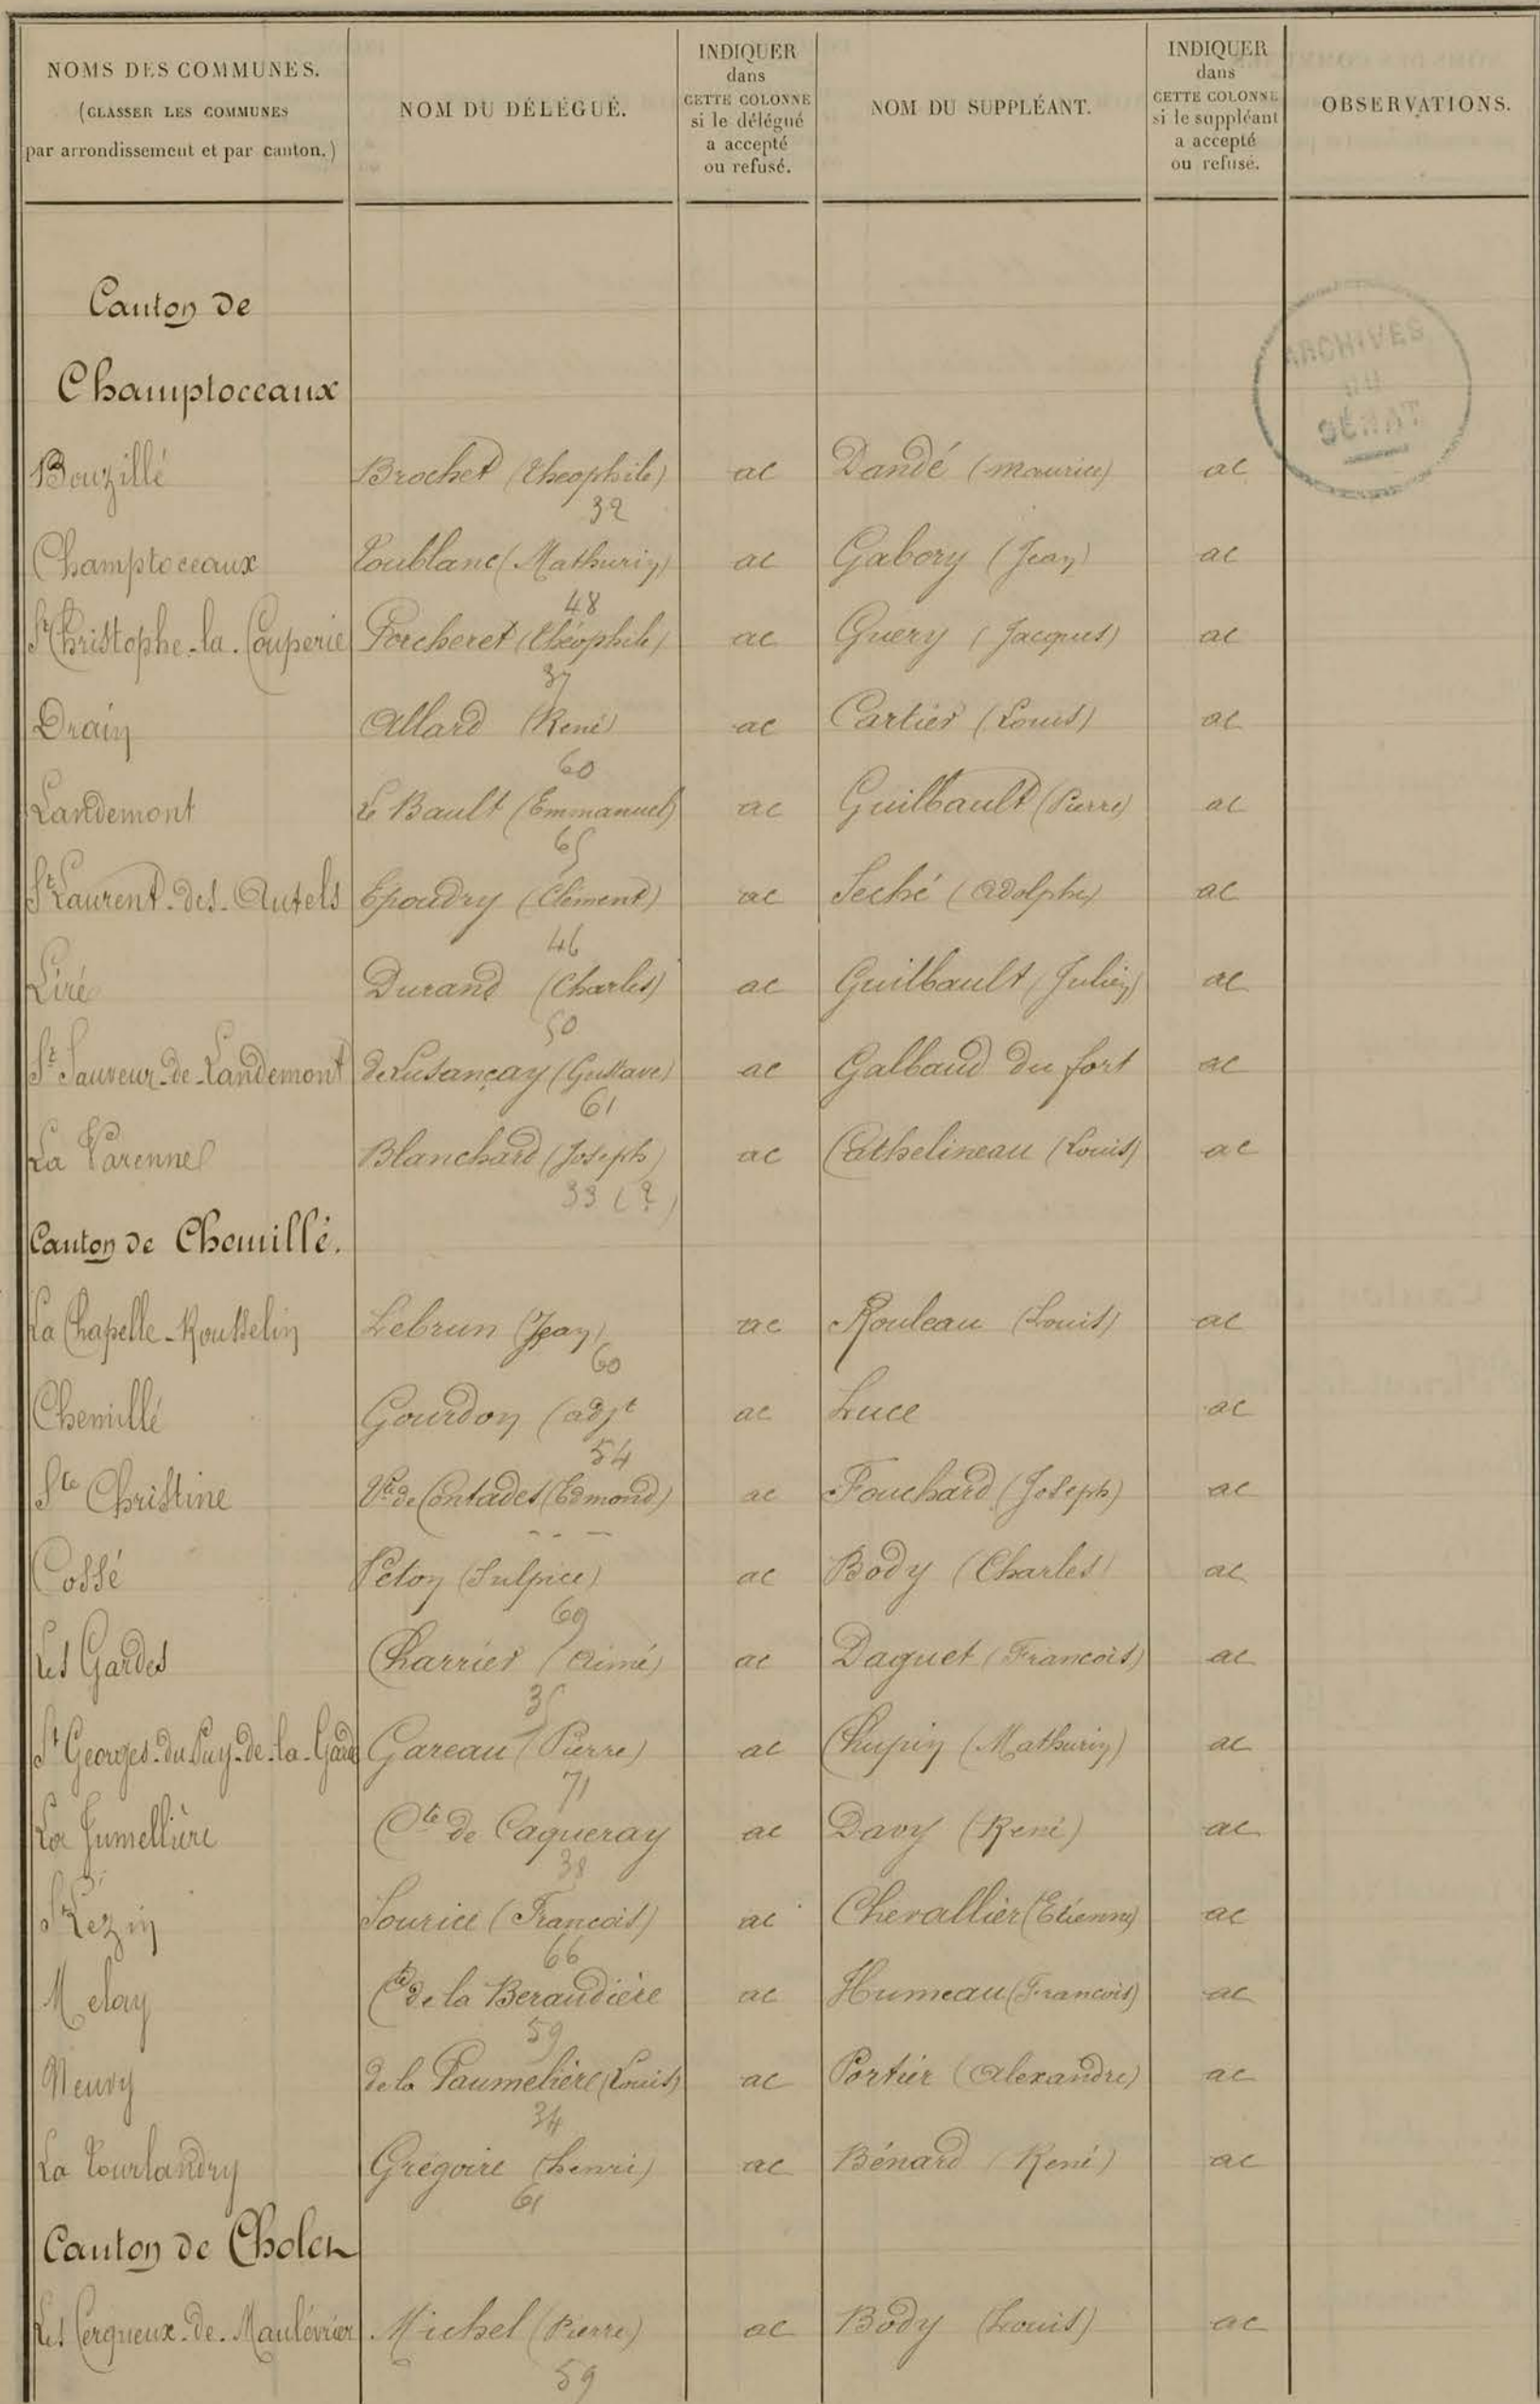 NOMS DES COMMUNES.
(CLASSER LES COMMUNES
par arrondissement et par canton.)
NOM DU DÉLÉGUÉ.
INDIQUER
dans
CETTE COLONNE
si le délégué
a accepté
ou refusé.
NOM DU SUPPLÉANT.
INDIQUER
dans
CETTE COLONNE
si le suppléant
a accepté
ou refusé.
OBSERVATIONS.
Canton de
Champtoceaux
ARCHIVES
DU
SÉNAT
Bouzillé Brochet (Théophile) ac Dandé (Maurice) ac
32
Champtoceaux Toublanc (Mathurin) ac Gabory (Jean) ac
48
St Christophe-la-Couperie Porcheret (Théophile) ac Guery (Jacques) ac
37
Drain Allard (René) ac Cartier (Louis) ac
60
Landemont Le Bault (Emmanuel) ac Guilbault (Pierre) ac
65
St Laurent-des-Autels Epoudry (Clément) ac Seché (Adolphe) ac
46
Liré Durand (Charles) ac Guilbault (Julien) ac
50
St Sauveur-de-Landemont de Lusançay (Gustave) ac Galbaud du fort ac
61
La Varenne Blanchard (Joseph) ac Cathelineau (Louis) ac
33 (?)
Canton de Chemillé.
La Chapelle-Rousselin Lebrun (Jean) ac Rouleau (Louis) ac
60
Chemillé Gourdon (adjt ac Luce ac
54
Ste Christine Vte de Contades (Edmond) ac Fouchard (Joseph) ac
- - -
Cossé Péton (Sulpice) ac Body (Charles) ac
69
Les Gardes Charrier (Aimé) ac Daguet (François) ac
35
St Georges-du-Puy-de-la-Garde Gareau (Pierre) ac Chupin (Mathurin) ac
71
La Jumellière Cte de Caqueray ac Davy (René) ac
38
St Lézin Sourice (François) ac Chevallier (Etienne) ac
66
Melay Cte de la Beraudière ac Humeau (François) ac
59
Neuvy de la Paumelière (Louis) ac Portier (Alexandre) ac
34
La Tourlandry Grégoire (henri) ac Bénard (René) ac
61
Canton de Cholet
Les Cerqueux-de-Maulévrier Michel (Pierre) ac Body (Louis) ac
59